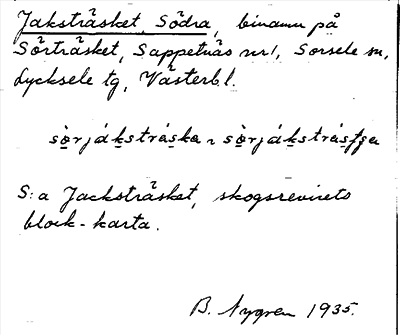 Jaksträsket, Södra, binamn på
Sörträsket, Sappetnäs nr 1, Sorsele sn,
Lycksele tg, Västerb. l.
sòrjákstràska ~ sòrjákstràsʃʃa
S:a Jacksträsket, skogsrevirets
block-karta.
B. Nygren 1935.